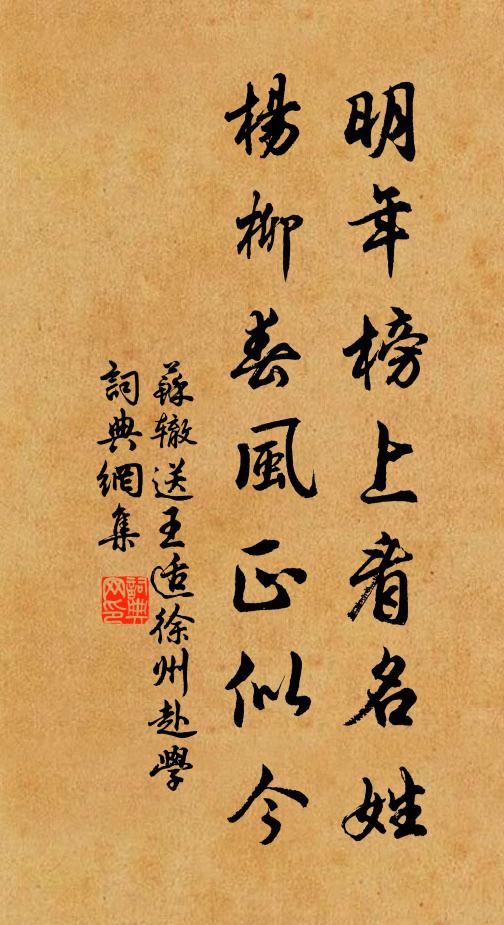 明年榜上看名姓
楊柳春風正似今
蘇轍送王适徐州赴學
詞典網集
詞典网印